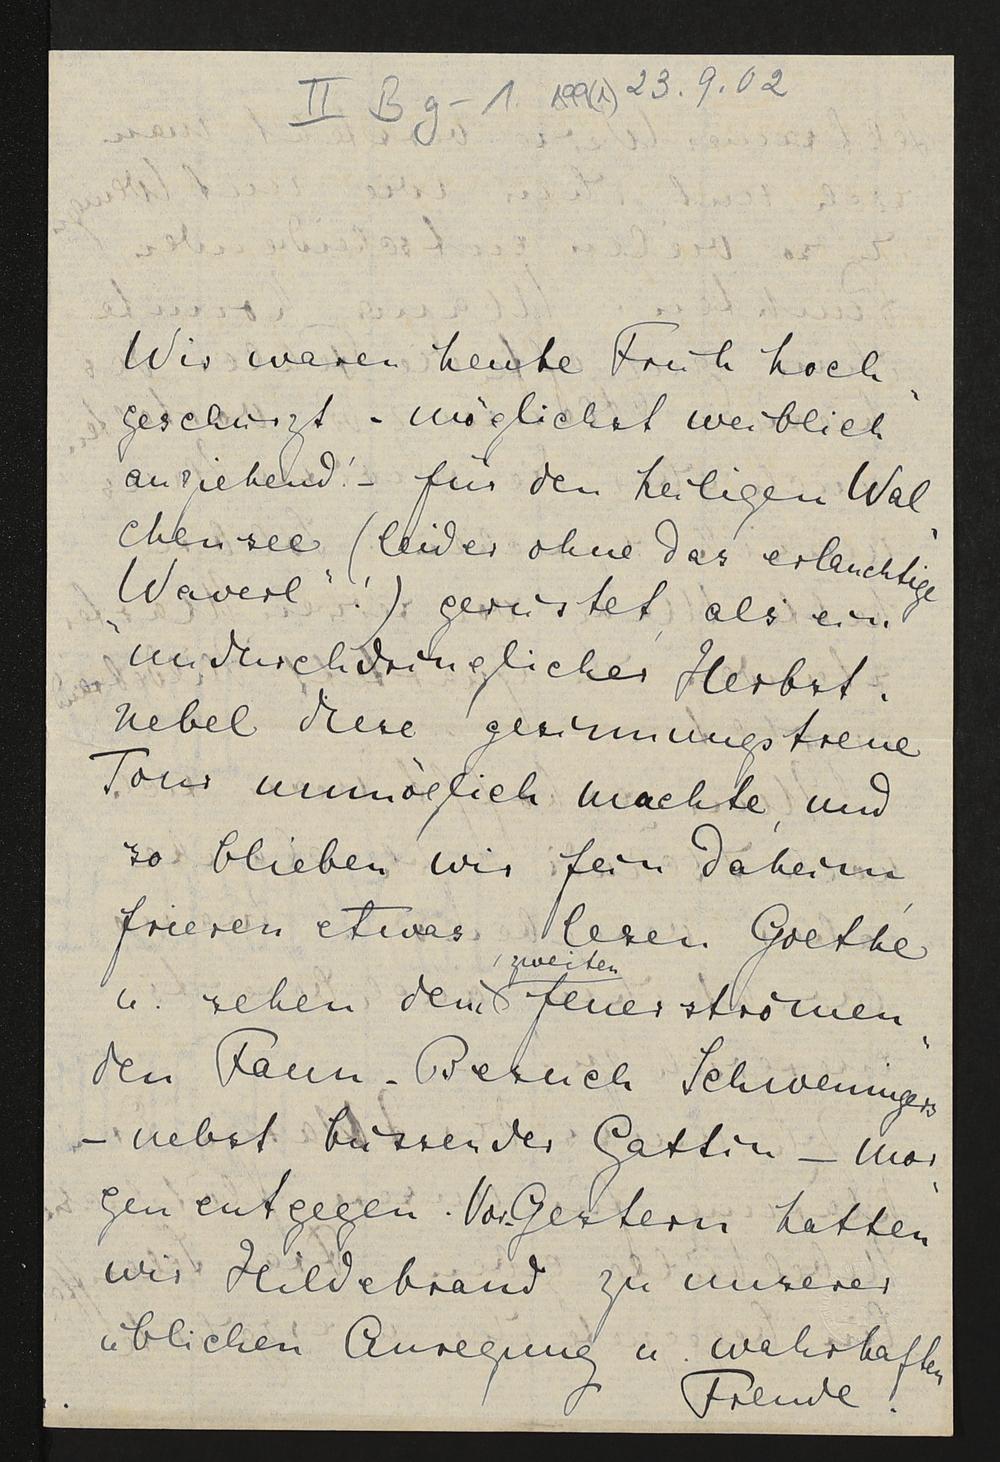 II Bg-1. 199(1) 23.9.02
Wir waren heute Früh hoch
geschürzt - möglichst weiblich
anziehend! - für den heiligen Wal
chensee (leider ohne das erlauchtige
"Waverl"!) gerüstet, als ein
undurchdringlicher Herbst-
nebel diese gesinnungstreue
Tour unmöglich machte, und
so blieben wir fein daheim,
frieren etwas lesen Goethe
zweiten
u. sehen dem feuerströmen
den Faun-Besuch Schweningers
- nebst büssender Gattin - mor
gen entgegen. Vor-Gestern hatten
wir Hildebrand zu unserer
üblichen Anregung u. wahrhaften
Freude.